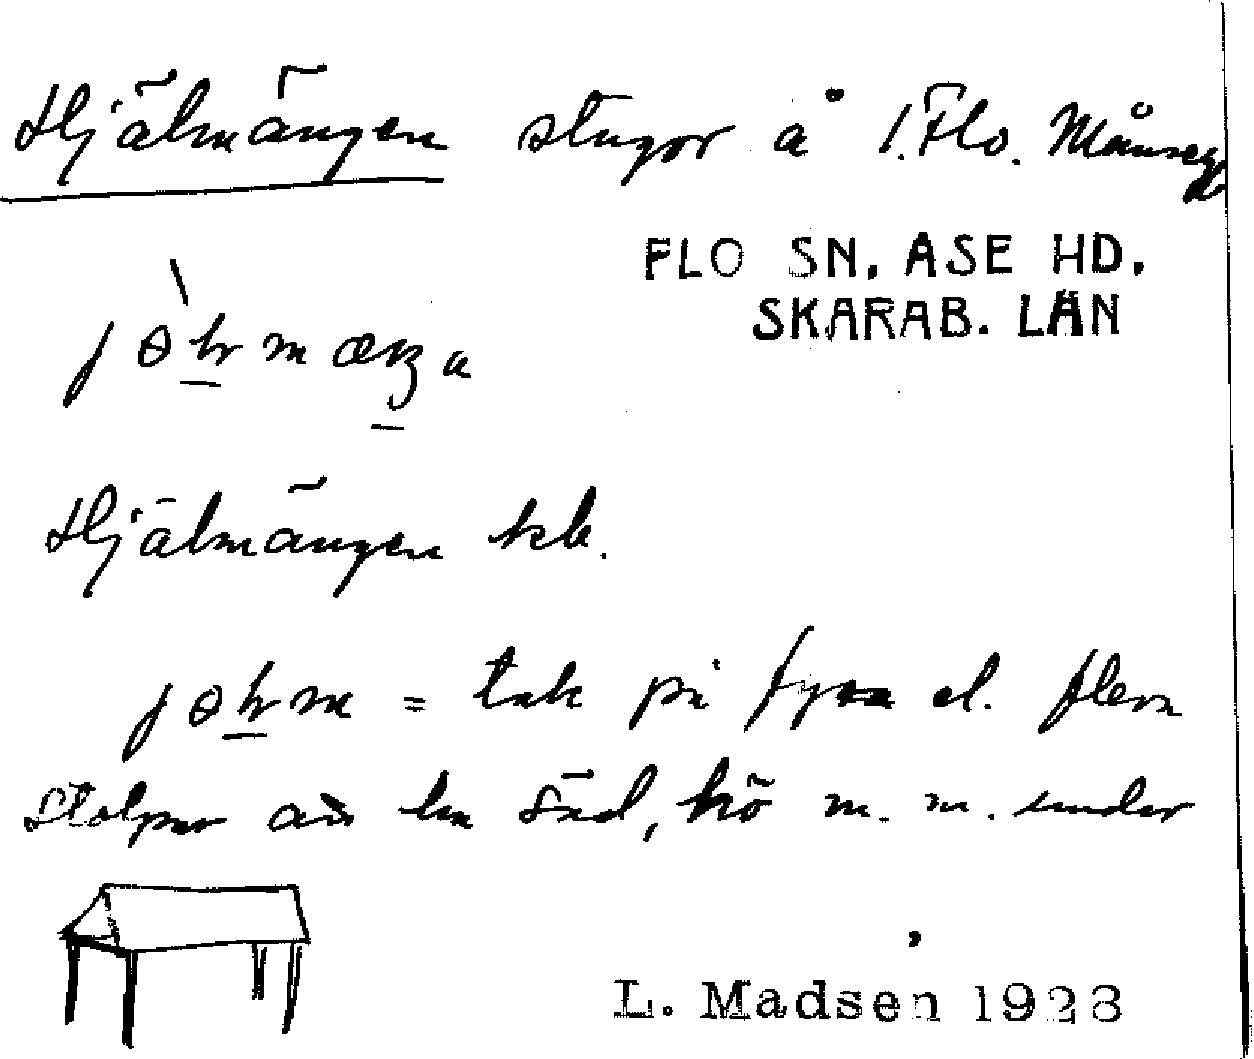 Hjälmängen stugor å 1. Flo. Månseg
FLO SN. ASE HD.
SKARAB. LÄN
Hjälmängen kb.
= tak på fyra el. flera
stolpar att ha säd, hö m. m. under
L. Madsen 1928